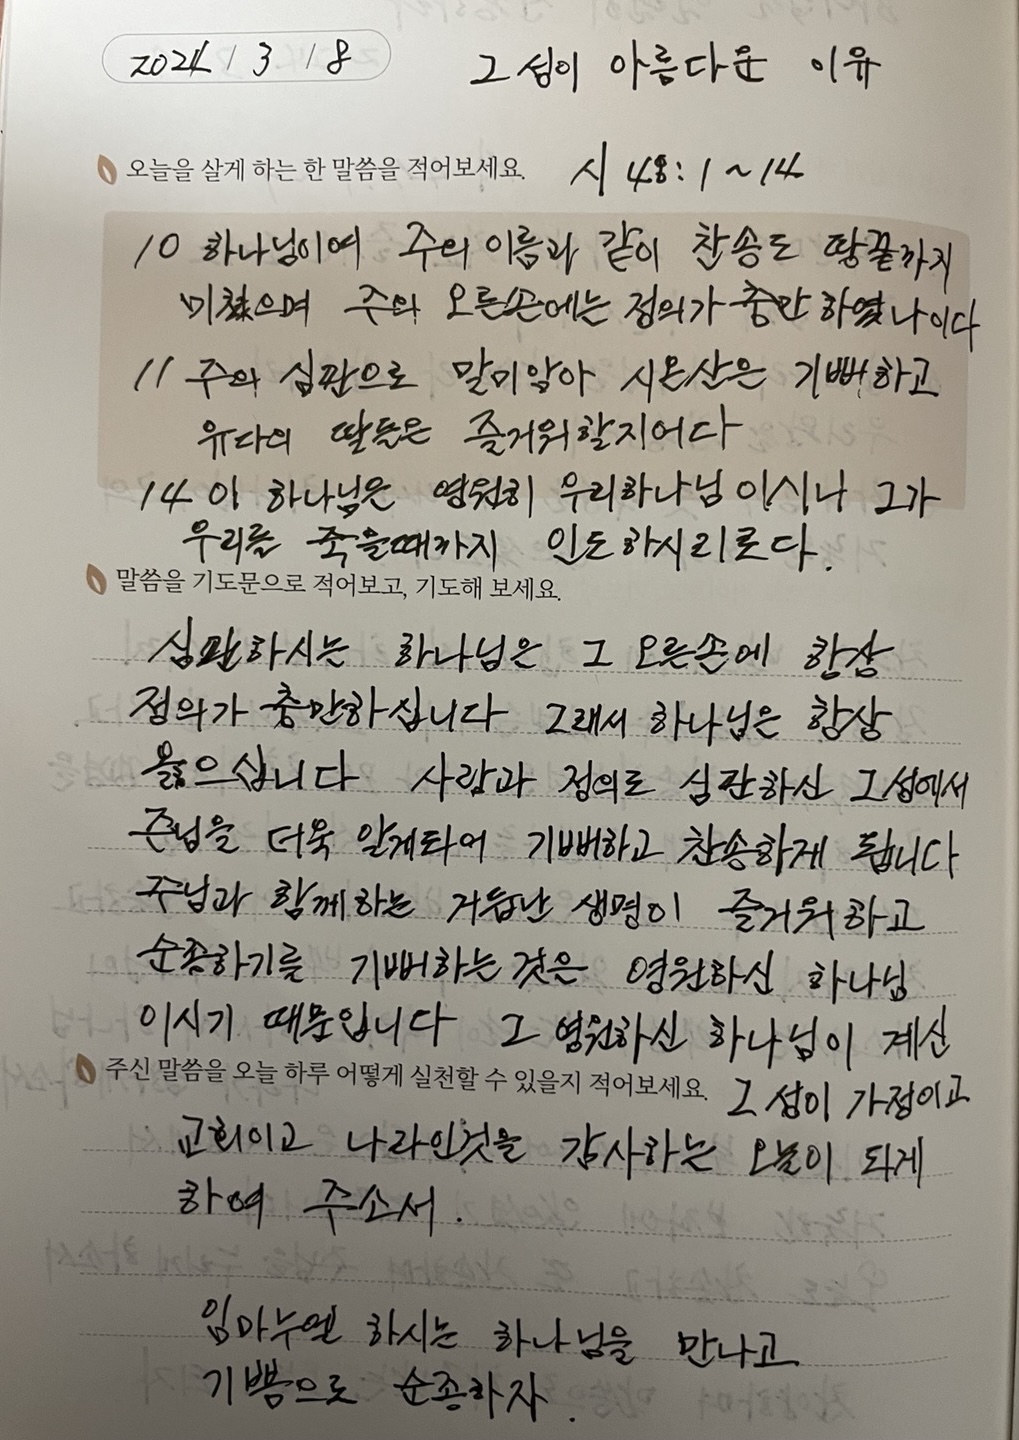 2024 / 3 / 8 그 성이 아름다운 이유
오늘을 살게 하는 한 말씀을 적어보세요. 시 48:1~14
10 하나님이여 주의 이름과 같이 찬송도 땅끝까지
미쳤으며 주의 오른손에는 정의가 충만하였나이다
11 주의 심판으로 말미암아 시온산은 기뻐하고
유다의 딸들은 즐거워할지어다
14 이 하나님은 영원히 우리하나님이시니 그가
우리를 죽을때까지 인도하시리로다.
말씀을 기도문으로 적어보고, 기도해 보세요.
심판하시는 하나님은 그 오른손에 항상
정의가 충만하십니다 그래서 하나님은 항상
옳으십니다 사랑과 정의로 심판하신 그성에서
주님을 더욱 알게되어 기뻐하고 찬송하게 됩니다
주님과 함께하는 거듭난 생명이 즐거워하고
순종하기를 기뻐하는 것은 영원하신 하나님
이시기 때문입니다 그 영원하신 하나님이 계신
주신 말씀을 오늘 하루 어떻게 실천할 수 있을지 적어보세요. 그 성이 가정이고
교회이고 나라인것을 감사하는 오늘이 되게
하여 주소서.
임마누엘 하시는 하나님을 만나고
기쁨으로 순종하자.